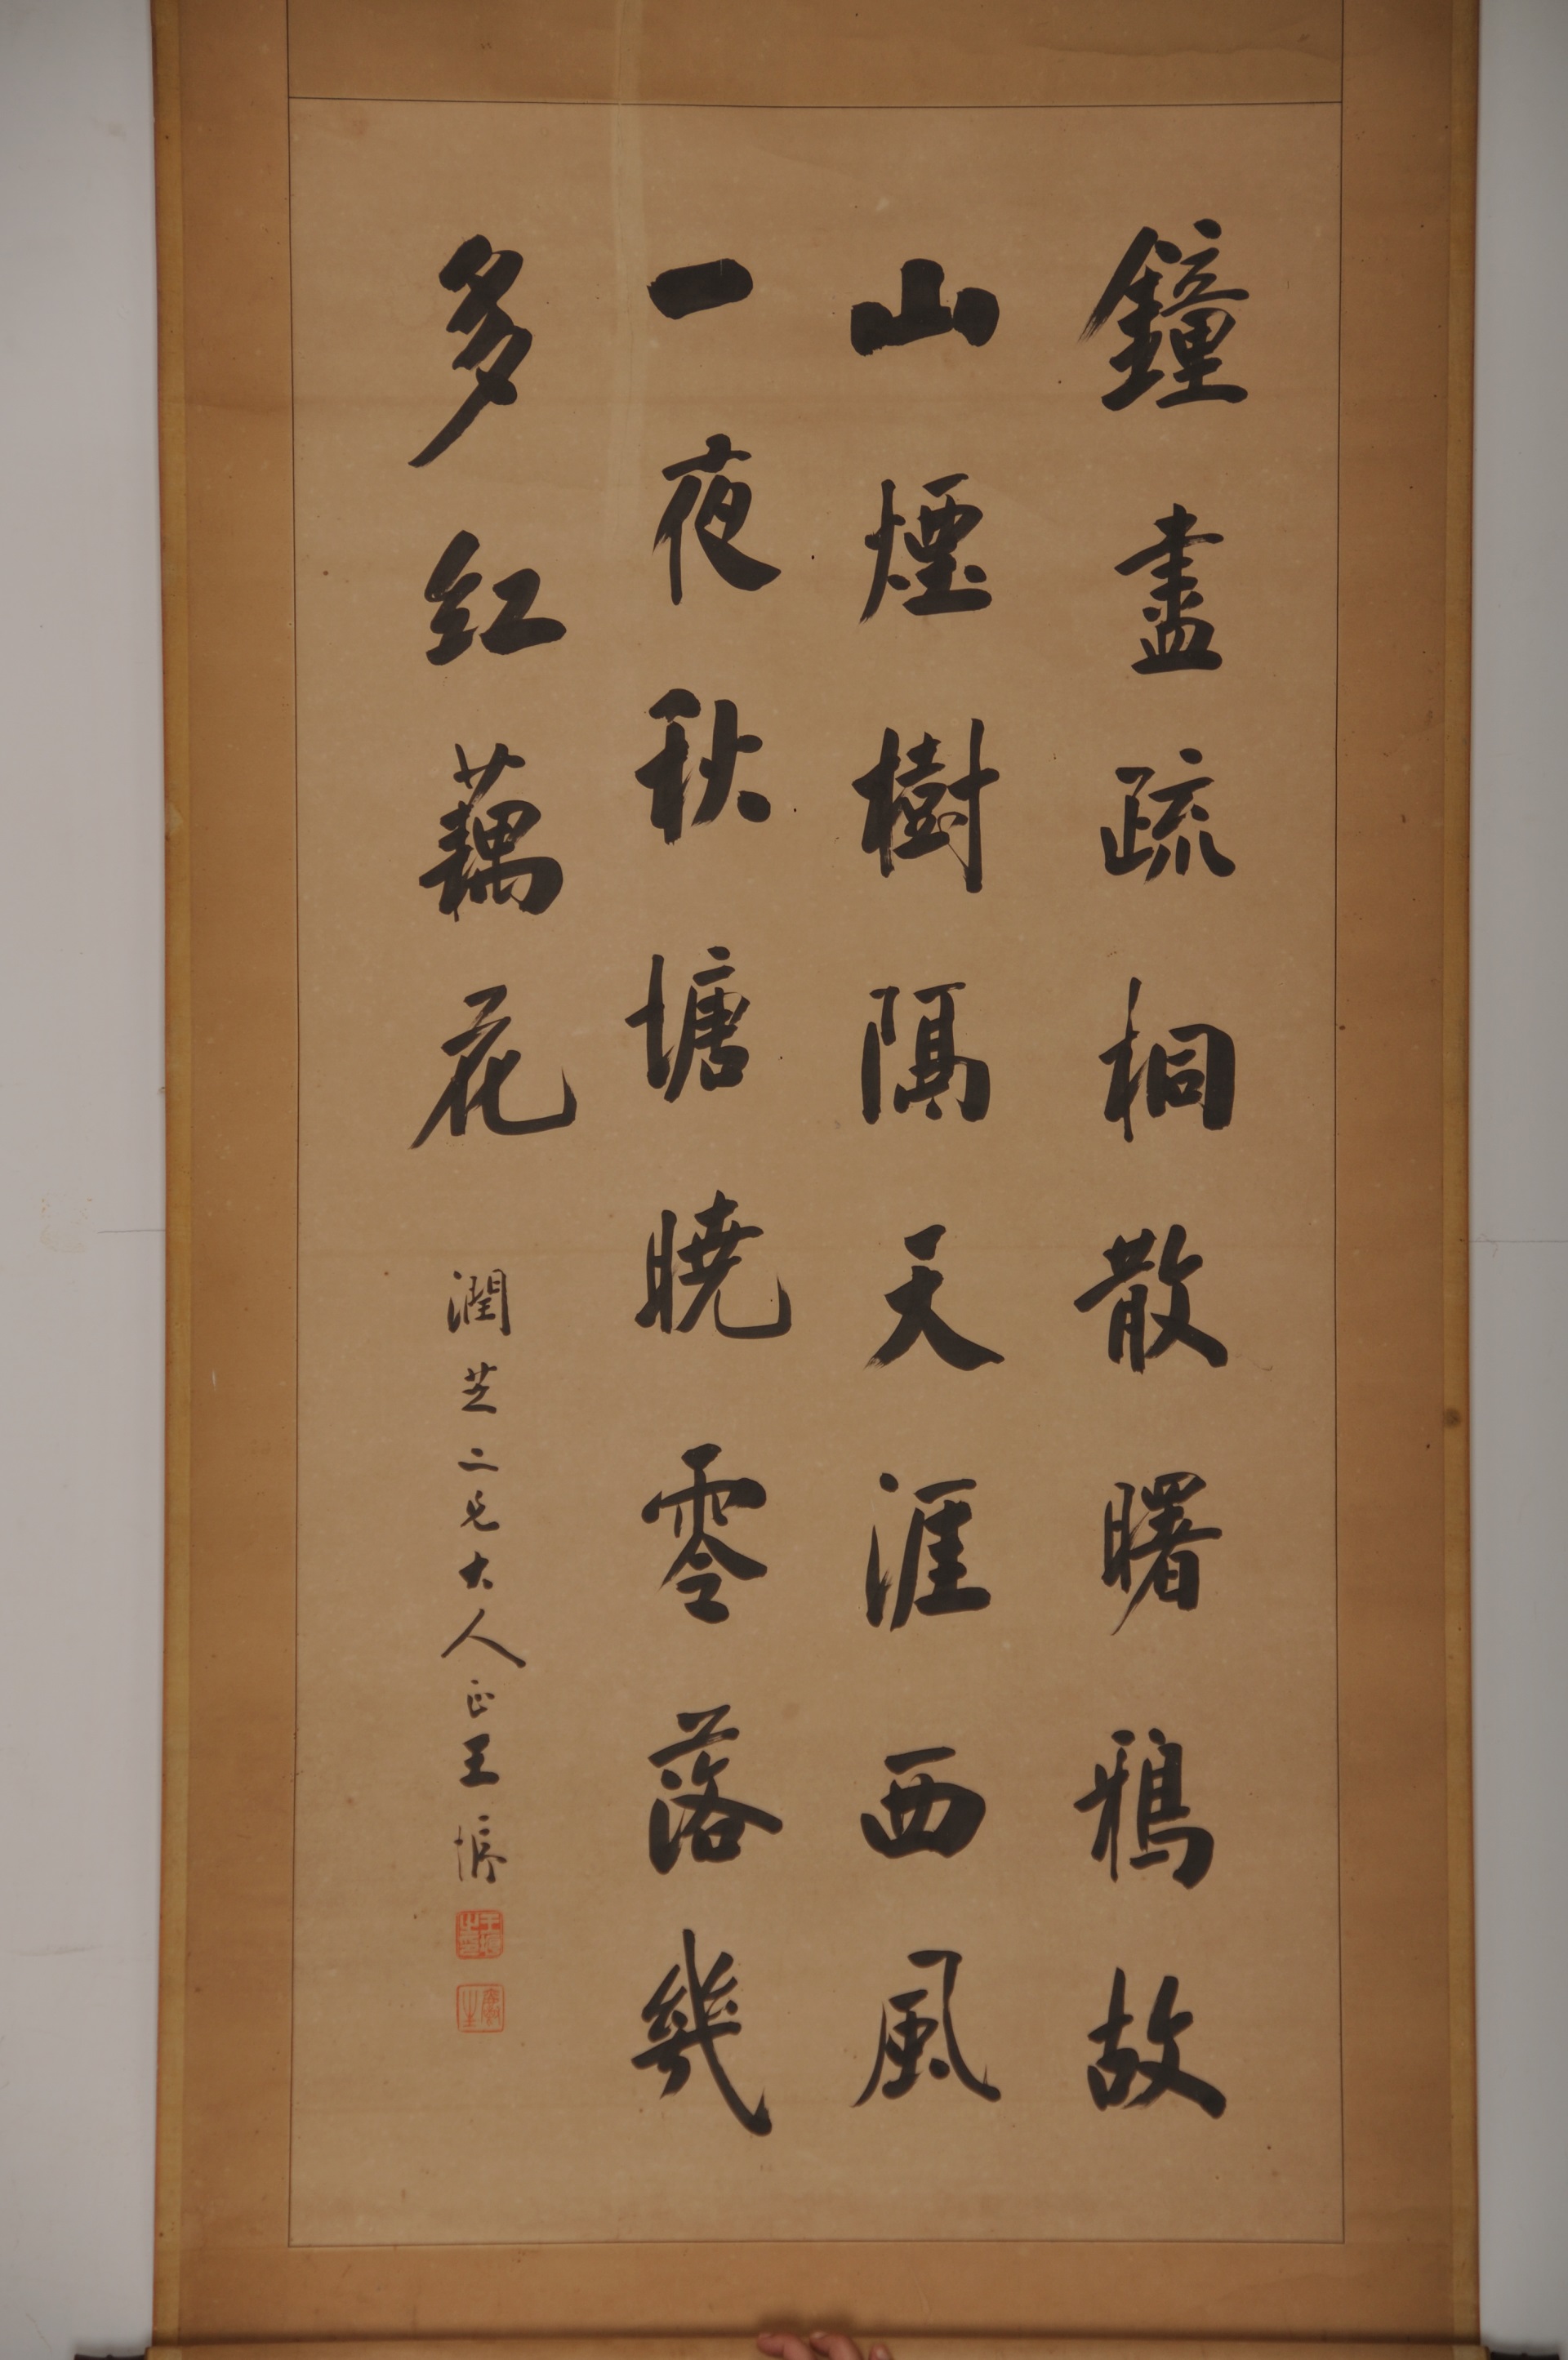 鐘盡疏桐散曙鴉故
山煙樹隔天涯西風
一夜秋塘曉零落幾
多紅藕花
潤芝二兄大人正王